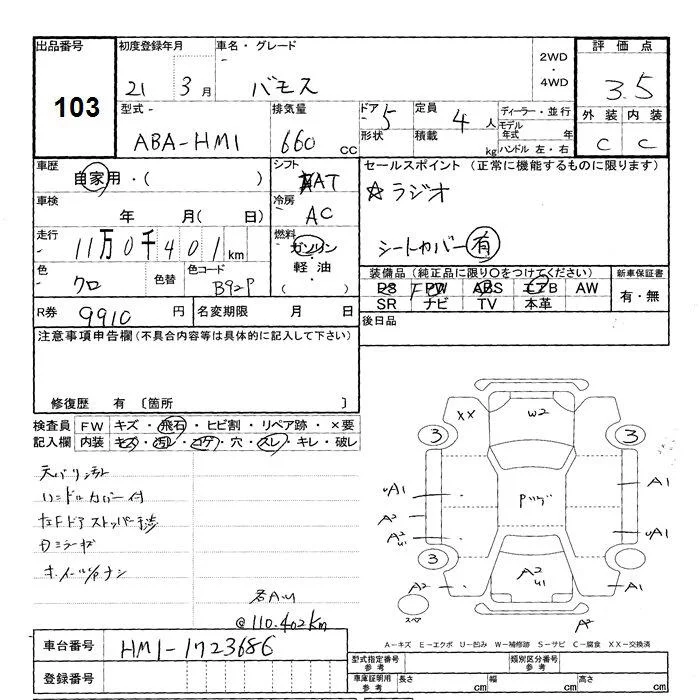 出品番号 初度登録年月 車名・グレード 2WD・4WD 評価点
103 21 3月 バモス 3.5
型式 排気量 ドア 5 定員 4人 ディーラー・並行 外装 内装
ABA-HM1 660 CC 形状 積載 kg モデル年式 年 C C
ハンドル 左・右
車歴 シフト セールスポイント(正常に機能するものに限ります)
自家用・( ) AT ☆ラジオ
車検 冷房
年 月( 日) AC
走行 燃料 シートカバー有
11万0千401km ガソリン・軽油・( )
色 色替 色コード 装備品(純正品に限り〇をつけてください) 新車保証書
クロ B92P PS PW ABS エアB AW 有・無
SR ナビ TV 本革
R券 9910円 名変期限 月 日 後日品
注意事項申告欄(不具合内容等は具体的に記入して下さい)
修復歴 有 〔箇所
検査員 FW キズ・飛石・ヒビ割・リペア跡・×要
記入欄 内装 キズ・汚レ・コゲ・穴・スレ・キレ・破レ
XX W2
3 3
ハンドルカバー付
左Fドアストッパー
ミラーキズ
Pツゲ
UA1 A1
A2 UA1
A2 U1
3
A2 A2 U1 A1
スペア A2
@110.402km
A-キズ E-エクボ U-凹み W-補修跡 S-サビ C-腐食 XX-交換済
車台番号 HM1-1723686
型式指定番号 参考 類別区分番号 参考
登録番号 車庫証明用 参考 長さ cm 幅 cm 高さ cm